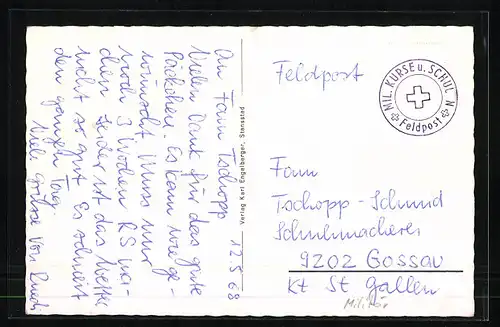 12.5.68
An Fam Tschopp
Vielen Dank für das gute
Päckchen. Es kam wie ge-
wünscht. Muss nur
noch 3 Wochen RS ma-
chen leider ist das Wetter
nicht so gut Es schneit
den ganzen Tag.
Viele Grüsse von Ruedi
Verlag Karl Engelberger, Stansstad
Feldpost
MIL. KURSE u. SCHUL N
Feldpost
Fam
Tschopp - Schmid
Schuhmacherei
9202 Gossau
Kt St Gallen
Militär